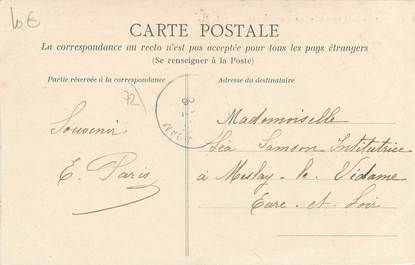 10€
CARTE POSTALE
La correspondance au recto n'est pas acceptée pour tous les pays étrangers
(Se renseigner à la Poste)
Partie réservée à la correspondance
Adresse du destinataire
72
Souvenir
E. Paris
Mademoiselle
Léa Samson Institutrice
à Meslay-le-Vidame
Eure-et-Loir